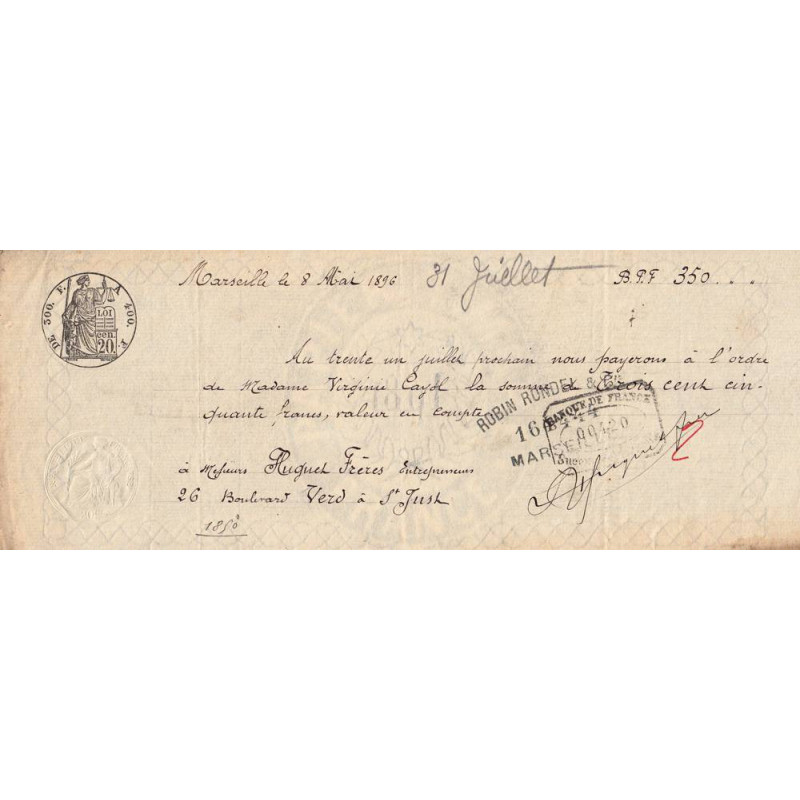 Marseille le 8 Mai 1896 31 Juillet B.P.F 350...
DE 300. F. A 400. F.
LOI
cen.
20
Au trente un juillet prochain nous payerons à l'ordre
de Madame Virginie Cayol la somme de Trois cent cin-
quante francs, valeur en compte
ROBIN RONDEL & Cie
16444
MARSEILLE
BANQUE DE FRANCE
à Messieurs Huguet Frères Entrepreneurs
26 Boulevard Verd à St Just